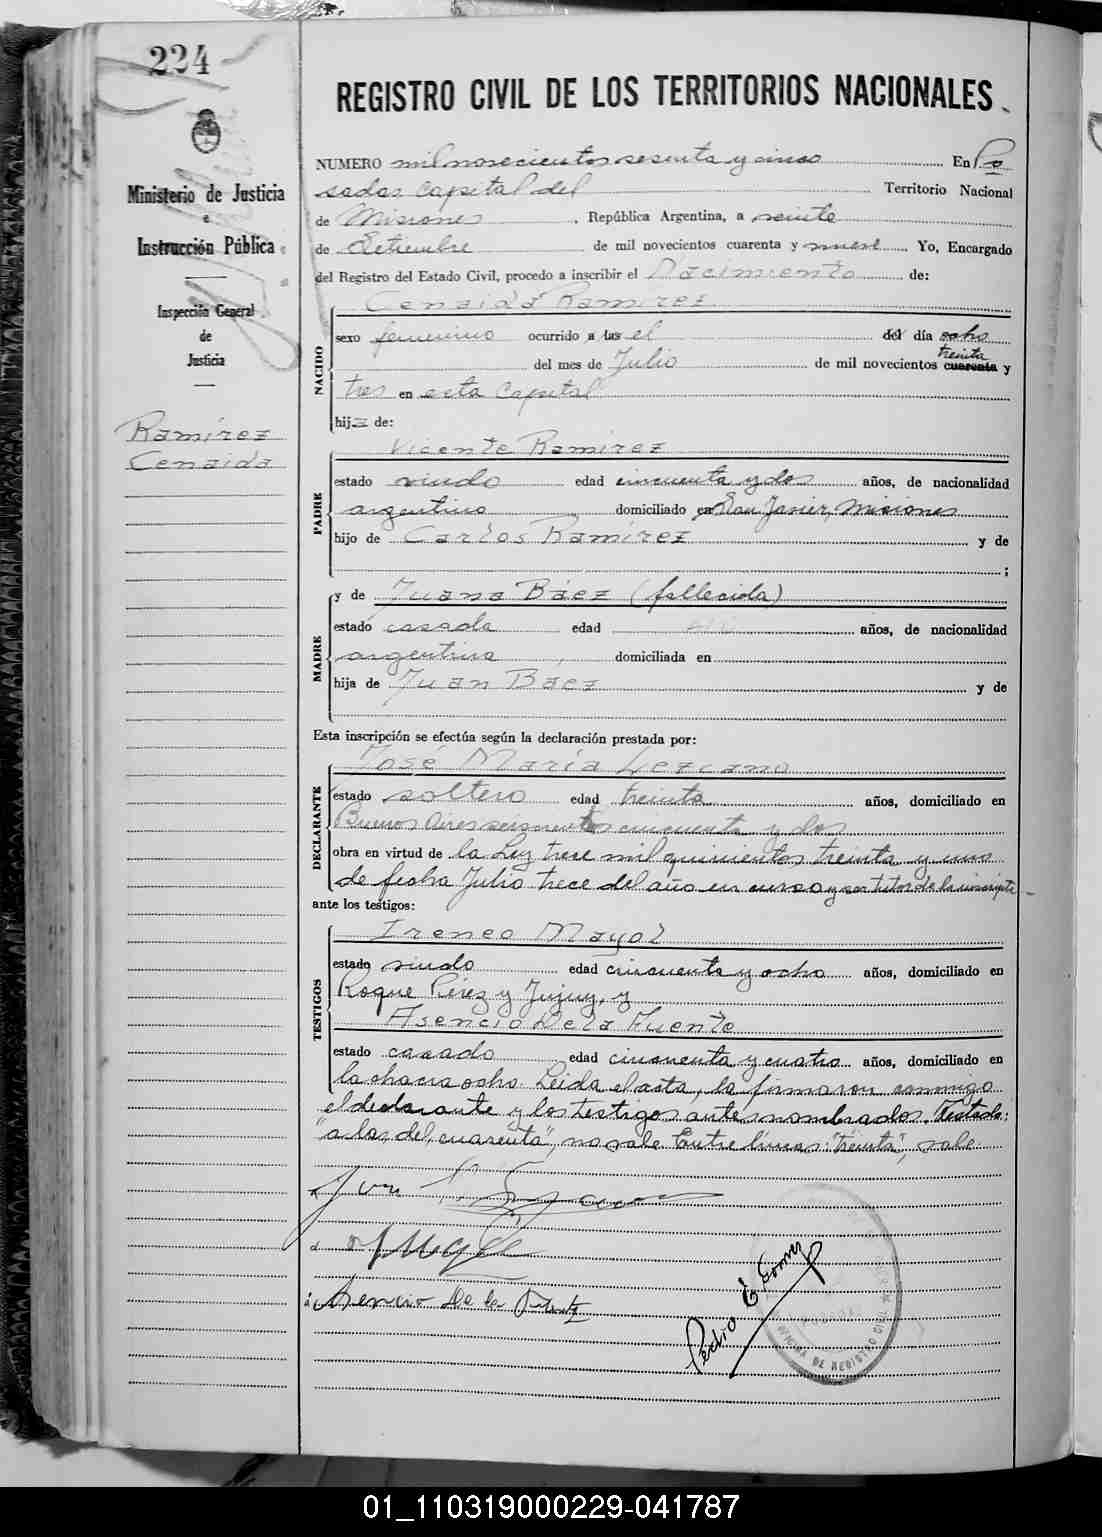 224
REGISTRO CIVIL DE LOS TERRITORIOS NACIONALES
Ministerio de Justicia
e
Instrucción Pública
Inspección General
de
Justicia
Ramírez
Cenaida
NUMERO mil novecientos sesenta y cinco En Po
sadas Capital del Territorio Nacional
de Misiones, República Argentina, a veinte
de Setiembre de mil novecientos cuarenta y nueve Yo, Encargado
del Registro del Estado Civil, procedo a inscribir el Nacimiento de:
NACIDO
Cenaida Ramírez
sexo femenino ocurrido a las el del día ocho
treinta
del mes de Julio de mil novecientos cuarenta y
tres en esta Capital
hija de:
PADRE
Vicente Ramírez
estado viudo edad cincuenta y dos años, de nacionalidad
argentino domiciliado en San Javier, Misiones
hijo de Carlos Ramírez y de
;
MADRE
y de Juana Báez (fallecida)
estado casada edad años, de nacionalidad
argentina, domiciliada en
hija de Juan Báez y de
Esta inscripción se efectúa según la declaración prestada por:
DECLARANTE
José María Lezcano
estado soltero edad treinta años, domiciliado en
Buenos Aires seiscientos cincuenta y dos
obra en virtud de la Ley trece mil quinientos treinta y uno
de fecha Julio trece del año en curso y ser tutor de la inscripta
ante los testigos:
TESTIGOS
Ireneo Mayol
estado viudo edad cincuenta y ocho años, domiciliado en
Roque Pérez y Jujuy, y
Asencio De la Fuente
estado casado edad cincuenta y cuatro años, domiciliado en
la chacra ocho. Leida el acta, la firmaron conmigo
el declarante y los testigos antes nombrados. Testado:
"a las, del, cuarenta", no vale. Entre líneas: "treinta", vale
Asencio De la Fuente
Pedro E. Gomez
DE REGISTRO CIVIL
01_110319000229-041787